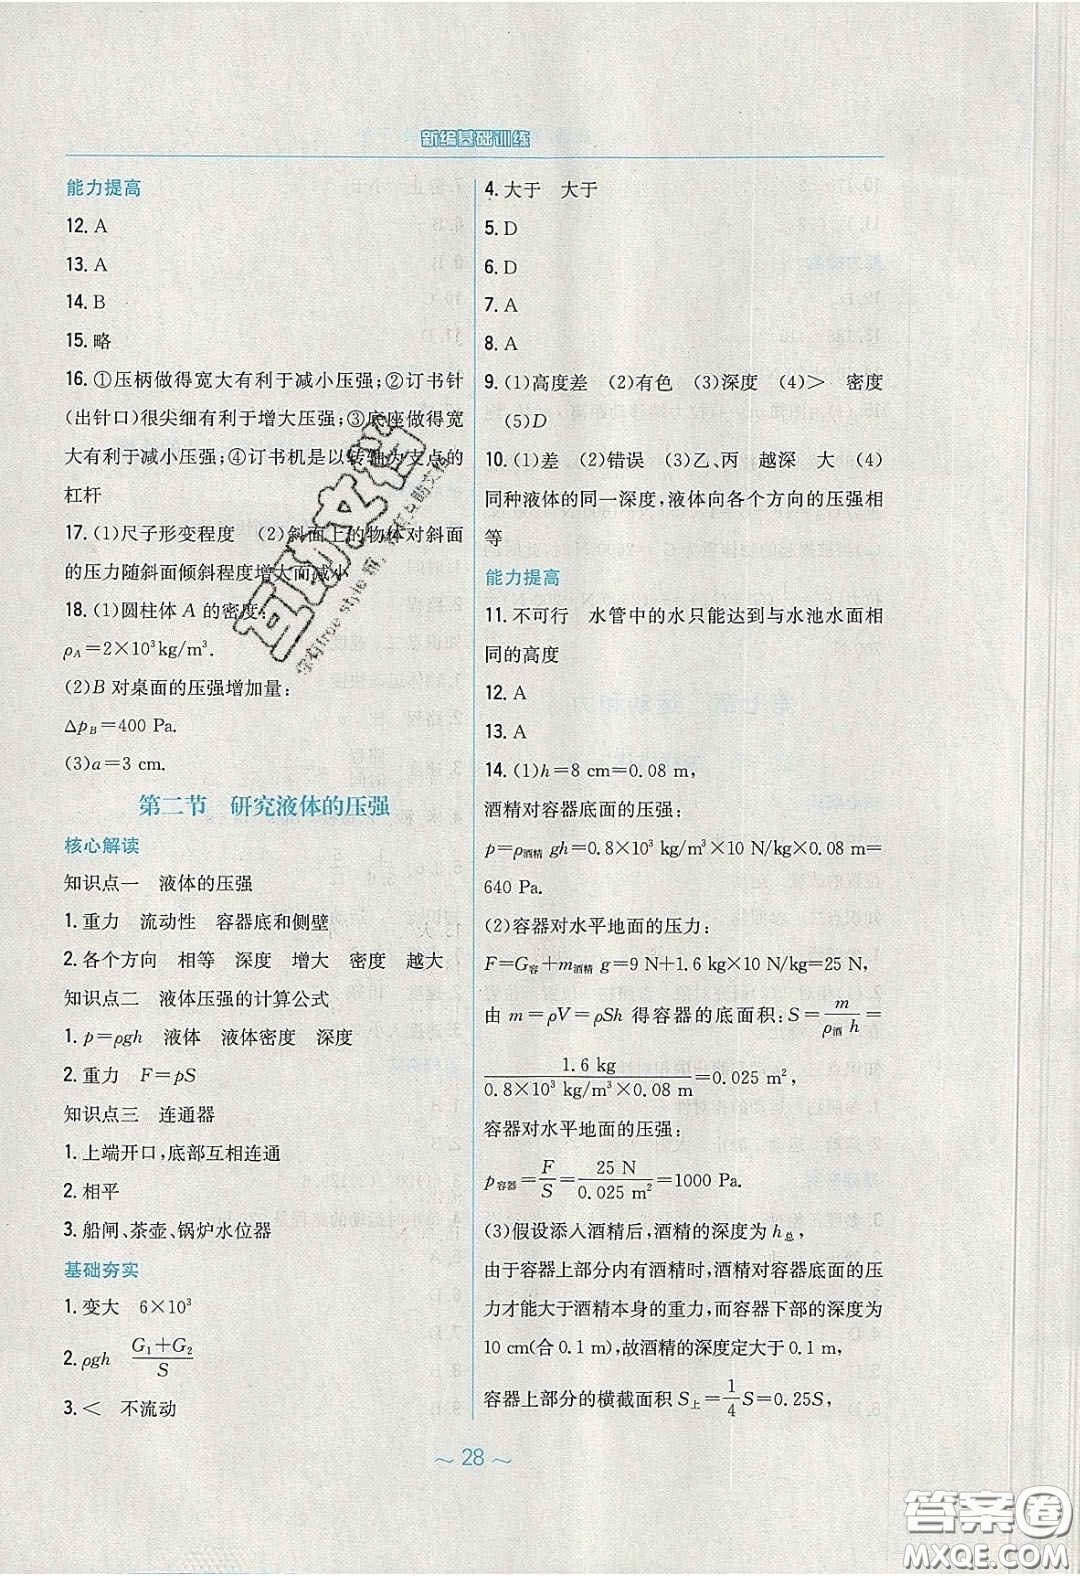 新编基础训练
能力提高
12. A
13. A
14. B
15. 略
16. ①压柄做得宽大有利于减小压强;②订书针
(出针口)很尖细有利于增大压强;③底座做得宽
大有利于减小压强;④订书机是以转轴为支点的
杠杆
17. (1)尺子形变程度 (2)斜面上的物体对斜面
的压力随斜面倾斜程度增大而减小
18. (1)圆柱体 A 的密度:
ρA=2×10³kg/m³.
(2)B 对桌面的压强增加量:
ΔpB=400 Pa.
(3)a=3 cm.
第二节 研究液体的压强
核心解读
知识点一 液体的压强
1. 重力 流动性 容器底和侧壁
2. 各个方向 相等 深度 增大 密度 越大
知识点二 液体压强的计算公式
1. p=ρgh 液体 液体密度 深度
2. 重力 F=pS
知识点三 连通器
1. 上端开口,底部互相连通
2. 相平
3. 船闸、茶壶、锅炉水位器
基础夯实
1. 变大 6×10³
2. ρgh (G₁+G₂)/S
3. < 不流动
4. 大于 大于
5. D
6. D
7. A
8. A
9. (1)高度差 (2)有色 (3)深度 (4)> 密度
(5)D
10. (1)差 (2)错误 (3)乙、丙 越深 大 (4)
同种液体的同一深度,液体向各个方向的压强相
等
能力提高
11. 不可行 水管中的水只能达到与水池水面相
同的高度
12. A
13. A
14. (1)h=8 cm=0.08 m,
酒精对容器底面的压强:
p=ρ酒精 gh=0.8×10³ kg/m³×10 N/kg×0.08 m=
640 Pa.
(2)容器对水平地面的压力:
F=G容+m酒精 g=9 N+1.6 kg×10 N/kg=25 N,
由 m=ρV=ρSh 得容器的底面积:S=m/(ρ酒 h)=
1.6 kg/(0.8×10³ kg/m³×0.08 m)=0.025 m²,
容器对水平地面的压强:
p容器=F/S=25 N/0.025 m²=1000 Pa.
(3)假设添入酒精后,酒精的深度为 h总,
由于容器上部分内有酒精时,酒精对容器底面的压
力才能大于酒精本身的重力,而容器下部的深度为
10 cm(合 0.1 m),故酒精的深度定大于 0.1 m,
容器上部分的横截面积 S上=1/4 S=0.25S,
~ 28 ~
互助文档
答案圈
MXQE.COM